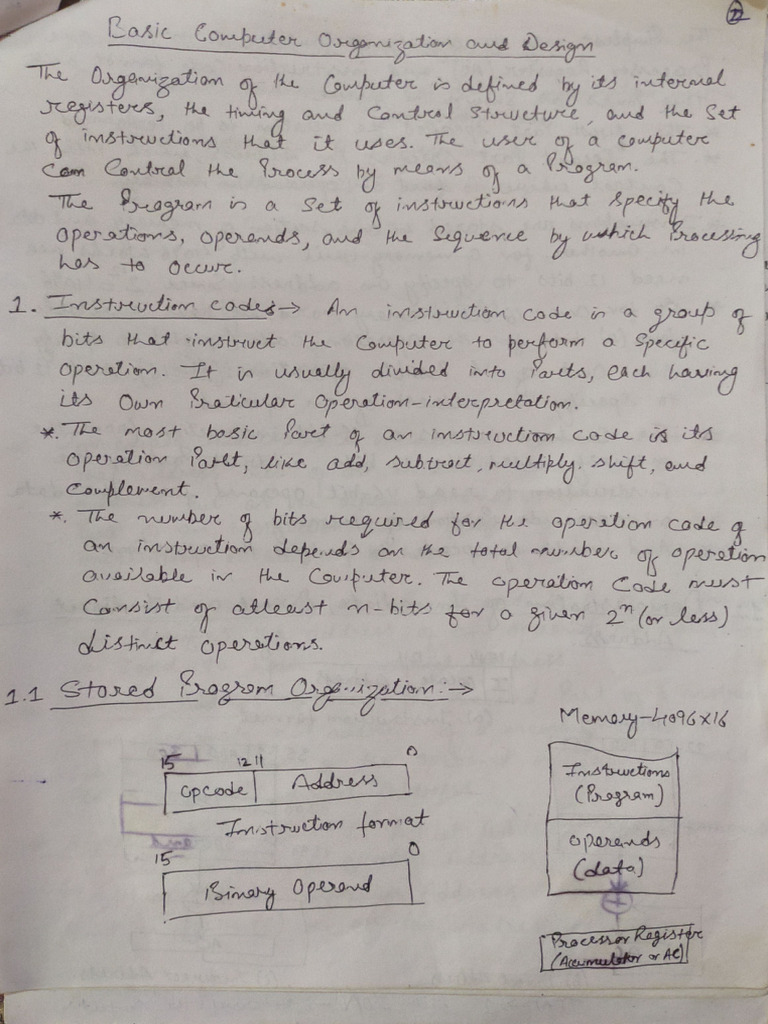 22
Basic Computer Organization and Design
The Organization of the Computer is defined by its internal
registers, the timing and Control Structure, and the Set
of instructions that it uses. The user of a computer
can Control the Process by means of a Program.
The Program is a Set of instructions that specify the
operations, operands, and the Sequence by which Processing
has to occur.
1. Instruction codes→ An instruction code is a group of
bits that instruct the Computer to perform a Specific
Operation. It is usually divided into Parts, each having
its Own Praticular Operation-interpretation.
*. The most basic Part of an instruction code is its
operation Part, like add, subtract, multiply. shift, and
Complement.
*. The number of bits required for the operation code of
an instruction depends on the total number of operation
available in the Computer. The operation Code must
Consist of atleast n-bits for a given 2ⁿ (or less)
distinct operations.
1.1 Stored Program Organization:→
Memory-4096×16
15 12 11 0
Opcode Address
Instruction format
15 0
Binary Operand
Instructions
(Program)
Operands
(data)
Processor Register
(Accumulator or AC)